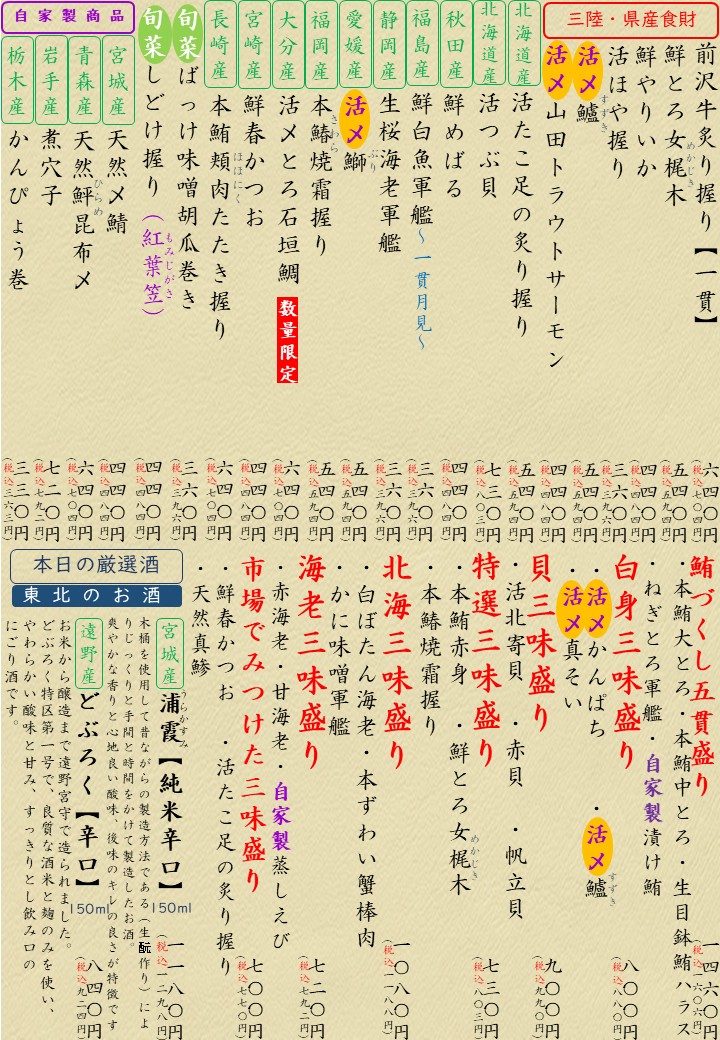 三陸・県産食財
前沢牛炙り握り【一貫】
六四〇円
(税込七〇四円)
鮮とろ女梶木
めかじき
五四〇円
(税込五九四円)
鮮やりいか
四四〇円
(税込四八四円)
活ほや握り
三六〇円
(税込三九六円)
活〆鱸
すずき
五四〇円
(税込五九四円)
活〆山田トラウトサーモン
四四〇円
(税込四八四円)
北海道産
活たこ足の炙り握り
五四〇円
(税込五九四円)
北海道産
活つぶ貝
七三〇円
(税込八〇三円)
秋田産
鮮めばる
四四〇円
(税込四八四円)
福島産
鮮白魚軍艦～一貫月見～
三六〇円
(税込三九六円)
静岡産
生桜海老軍艦
三六〇円
(税込三九六円)
愛媛産
活〆鰤
ぶり
五四〇円
(税込五九四円)
福岡産
本鰆焼霜握り
さわら
五四〇円
(税込五九四円)
大分産
活〆とろ石垣鯛 数量限定
六四〇円
(税込七〇四円)
宮崎産
鮮春かつお
四四〇円
(税込四八四円)
長崎産
本鮪頬肉たたき握り
ほほにく
六四〇円
(税込七〇四円)
旬菜
ばっけ味噌胡瓜巻き
三六〇円
(税込三九六円)
旬菜
しどけ握り(紅葉笠)
もみじがさ
四四〇円
(税込四八四円)
自家製商品
宮城産
天然〆鯖
四四〇円
(税込四八四円)
青森産
天然鮃昆布〆
ひらめ
六四〇円
(税込七〇四円)
岩手産
煮穴子
七二〇円
(税込七九二円)
栃木産
かんぴょう巻
三三〇円
(税込三六三円)
鮪づくし五貫盛り
・本鮪大とろ・本鮪中とろ・生目鉢鮪ハラス
・ねぎとろ軍艦・自家製漬け鮪
一四六〇円
(税込一六〇六円)
白身三味盛り
・活〆かんぱち ・活〆鱸
すずき
・活〆真そい
八〇〇円
(税込八八〇円)
貝三味盛り
・活北寄貝 ・赤貝 ・帆立貝
九〇〇円
(税込九九〇円)
特選三味盛り
・本鮪赤身 ・鮮とろ女梶木
めかじき
・本鰆焼霜握り
七三〇円
(税込八〇三円)
北海三味盛り
・白ぼたん海老・本ずわい蟹棒肉
・かに味噌軍艦
一〇八〇円
(税込一一八八円)
海老三味盛り
・赤海老・甘海老・自家製蒸しえび
七二〇円
(税込七九二円)
市場でみつけた三味盛り
・鮮春かつお ・活たこ足の炙り握り
・天然真鯵
七〇〇円
(税込七七〇円)
本日の厳選酒
東北のお酒
宮城産
浦霞【純米辛口】
うらかすみ
150ml
一一八〇円
(税込一二九八円)
木桶を使用して昔ながらの製造方法である(生酛作り)によ
りじっくりと手間と時間をかけて製造したお酒。
爽やかな香りと心地良い酸味、後味のキレの良さが特徴です
遠野産
どぶろく【辛口】
150ml
八四〇円
(税込九二四円)
お米から醸造まで遠野宮守で造られました。
どぶろく特区第一号で、良質な酒米と麹のみを使い、
やわらかい酸味と甘み、すっきりとし飲み口の
にごり酒です。